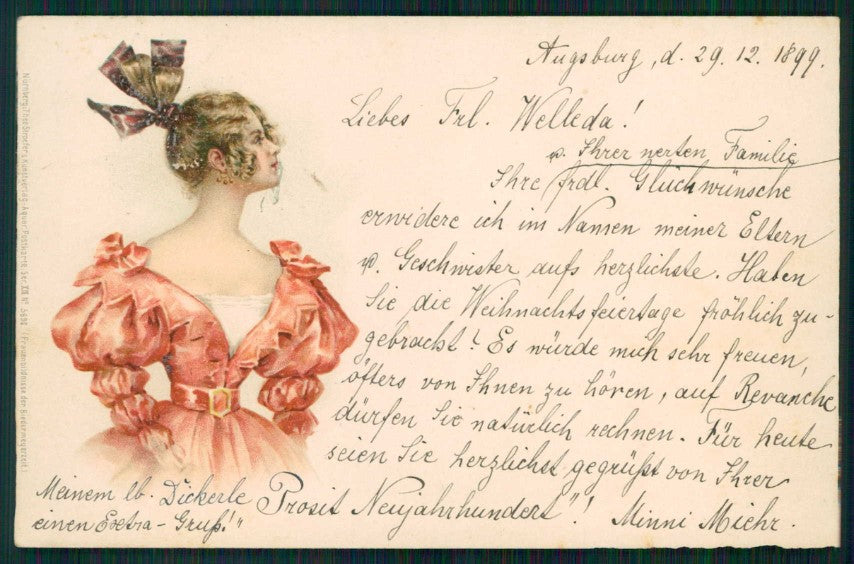 Augsburg, d. 29. 12. 1899.
Liebes Frl. Welleda!
u. Ihrer werten Familie
Ihre frdl. Glückwünsche
erwidere ich im Namen meiner Eltern
u. Geschwister aufs herzlichste. Haben
Sie die Weihnachtsfeiertage fröhlich zu-
gebracht? Es würde mich sehr freuen,
öfters von Ihnen zu hören, auf Revanche
dürfen Sie natürlich rechnen. Für heute
seien Sie herzlichst gegrüßt von Ihrer
Prosit Neujahrhundert"! Minni Miehr.
Meinem lb. Dickerle
einen Extra-Gruß!"
Nürnberg, Theo. Stroefer's Kunstverlag. Aquar. Postkarte Se. XX No 5698